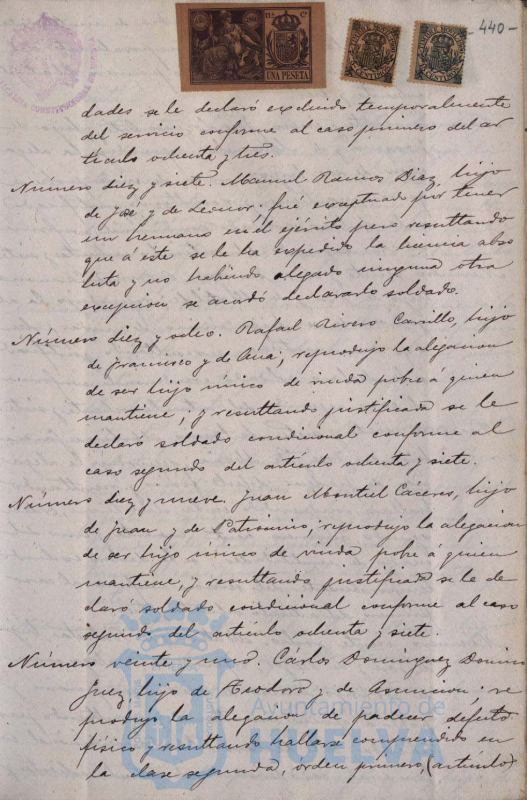 -440-
UNA PESETA
dades se le declaró excluido temporalmente
del servicio conforme al caso primero del ar
tículo ochenta y tres.
Número diez y siete. Manuel Ramos Diaz, hijo
de José y de Leonor. fué exceptuado por tener
un hermano en el ejército pero resultando
que á éste se le ha expedido la licencia abso
luta y no habiendo alegado ninguna otra
excepcion se acordó declararlo soldado.
Número diez y ocho. Rafael Rivero Carrillo, hijo
de Francisco y de Ana; reprodujo la alegacion
de ser hijo único de viuda pobre á quien
mantiene; y resultando justificada se le
declaró soldado condicional conforme al
caso segundo del artículo ochenta y siete.
Número diez y nueve. Juan Montiel Cáceres, hijo
de Juan y de Patrocinio; reprodujo la alegacion
de ser hijo único de viuda pobre á quien
mantiene, y resultando justificada se le de
claró soldado condicional conforme al caso
segundo del artículo ochenta y siete.
Número veinte y uno. Cárlos Dominguez Domin
guez, hijo de Teodoro y de Asuncion; re
produjo la alegacion de padecer defecto
físico y resultando hallarse comprendido en
la clase segunda, orden primero, (artículo)
Ayuntamiento de
HUELVA